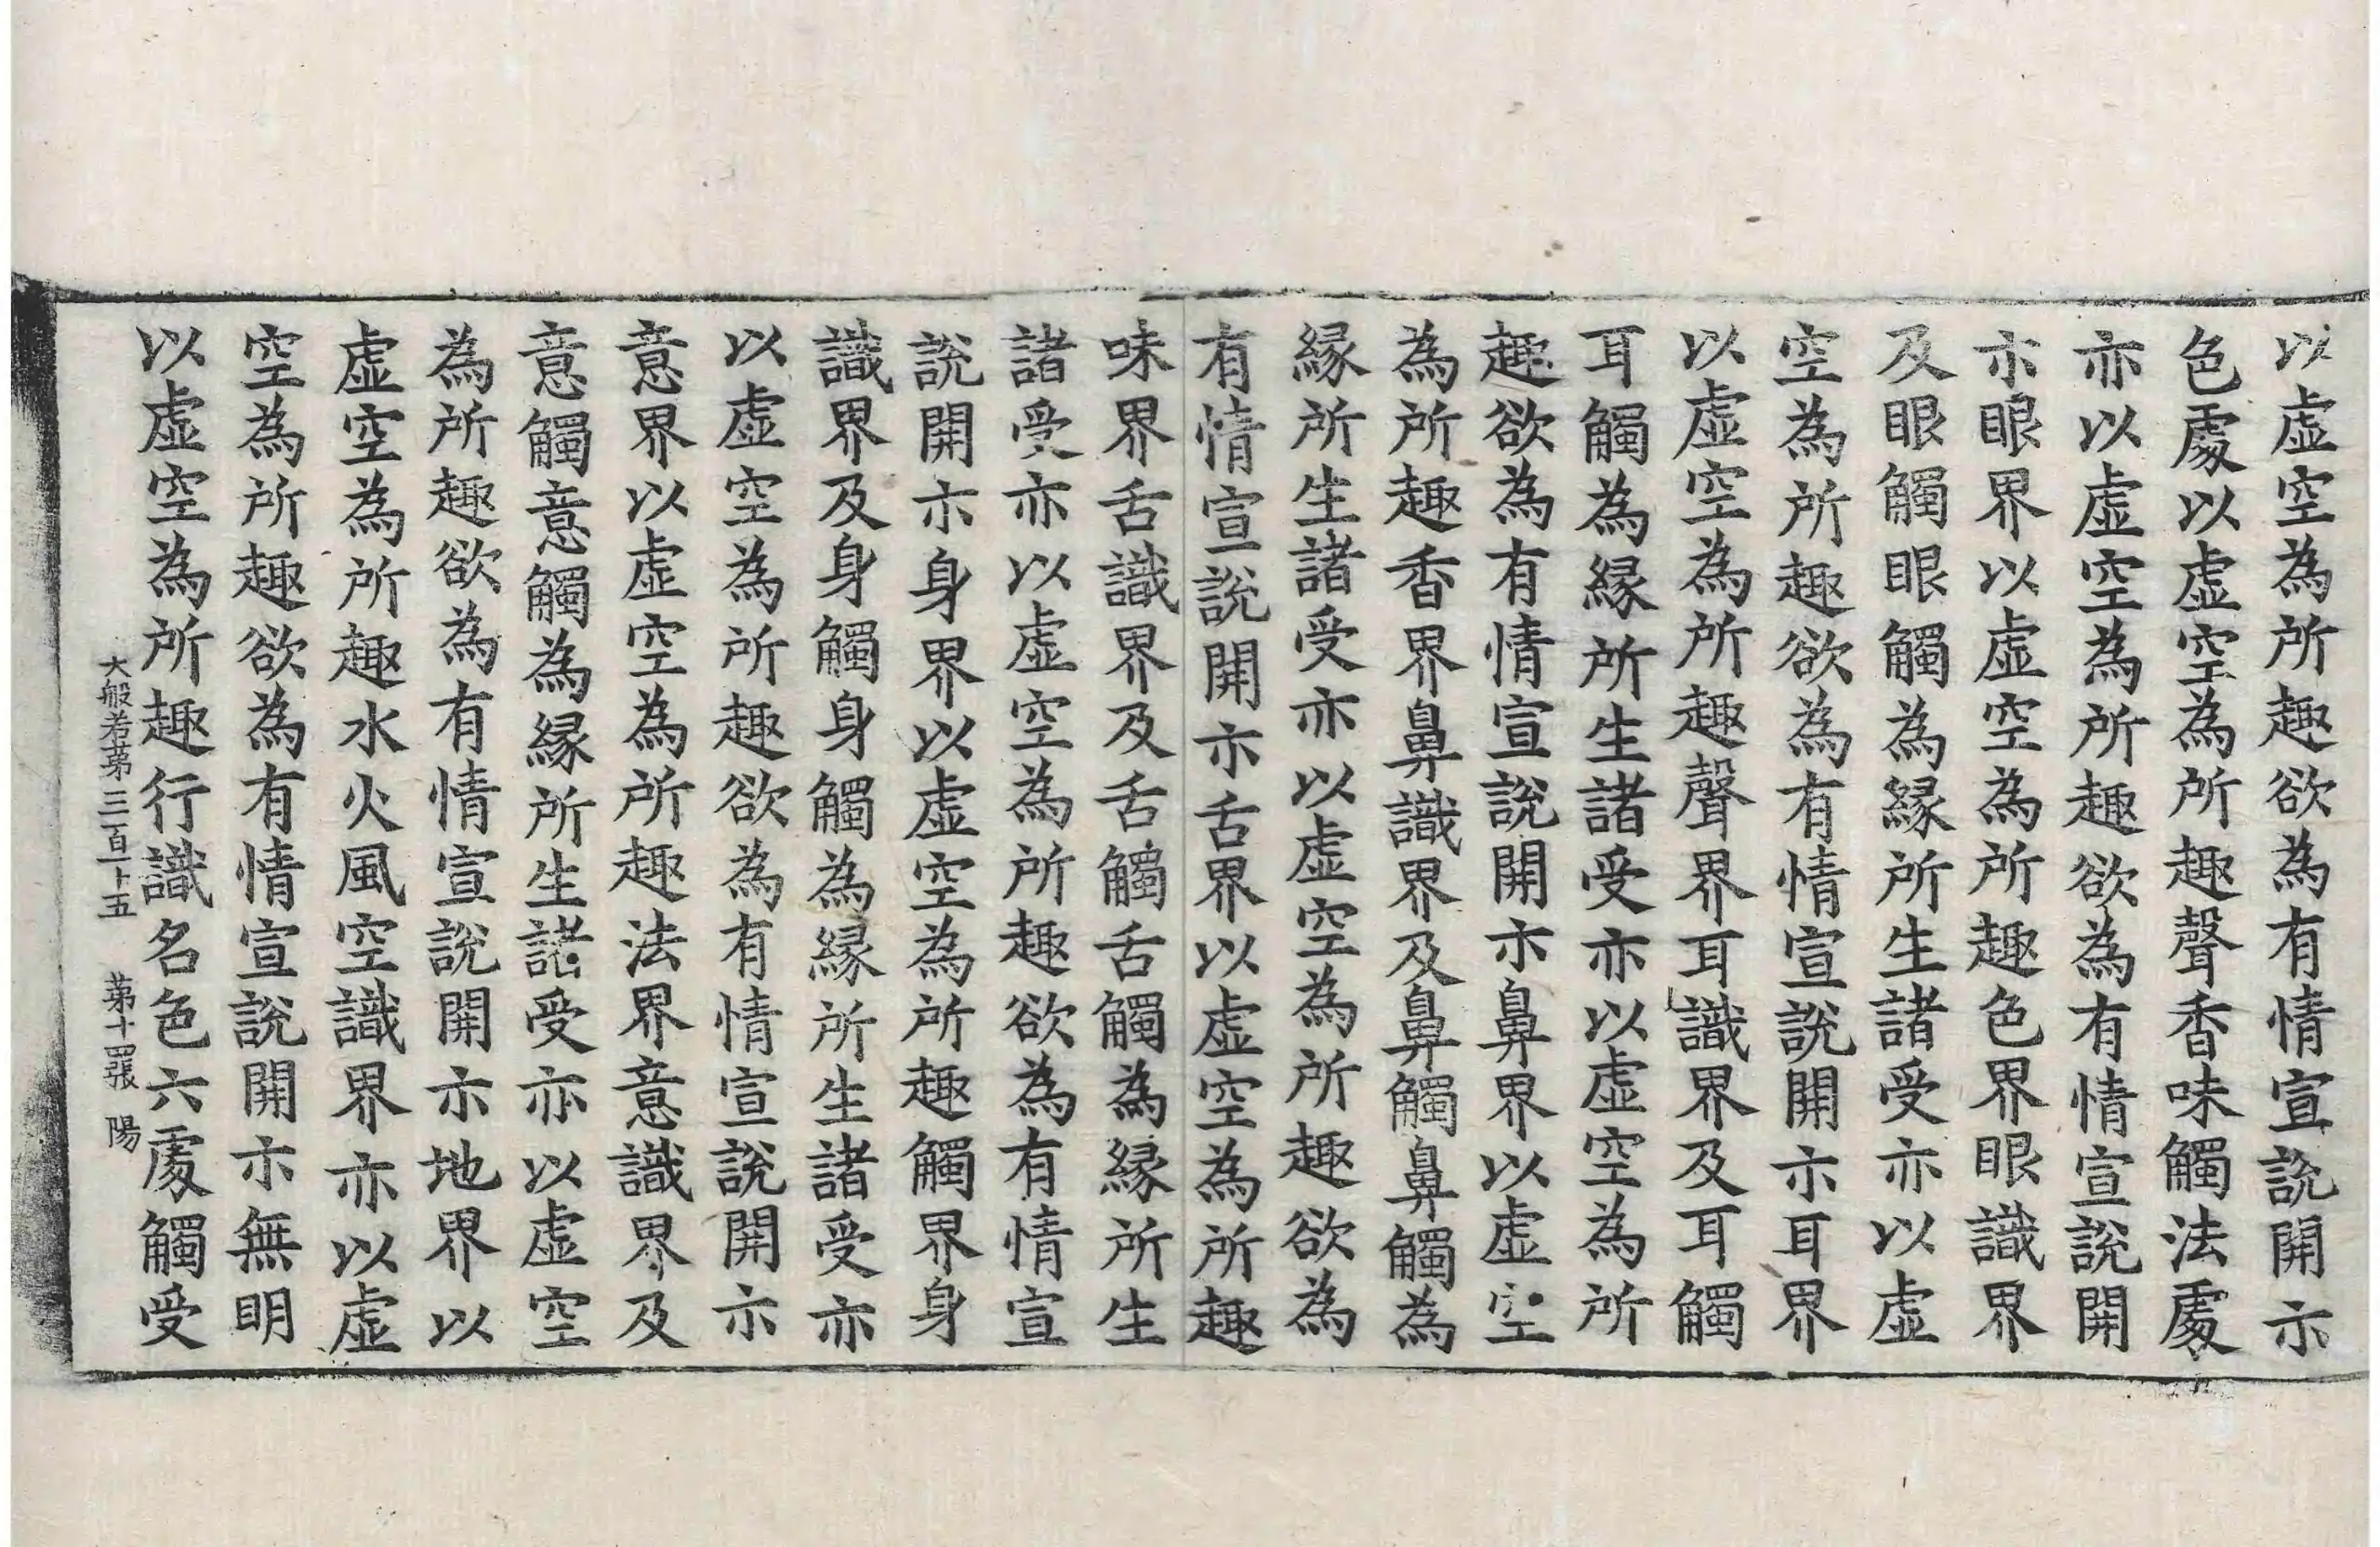 以虛空為所趣欲為有情宣說開示
色處以虛空為所趣聲香味觸法處
亦以虛空為所趣欲為有情宣說開
示眼界以虛空為所趣色界眼識界
及眼觸眼觸為緣所生諸受亦以虛
空為所趣欲為有情宣說開示耳界
以虛空為所趣聲界耳識界及耳觸
耳觸為緣所生諸受亦以虛空為所
趣欲為有情宣說開示鼻界以虛空
為所趣香界鼻識界及鼻觸鼻觸為
緣所生諸受亦以虛空為所趣欲為
有情宣說開示舌界以虛空為所趣
味界舌識界及舌觸舌觸為緣所生
諸受亦以虛空為所趣欲為有情宣
說開示身界以虛空為所趣觸界身
識界及身觸身觸為緣所生諸受亦
以虛空為所趣欲為有情宣說開示
意界以虛空為所趣法界意識界及
意觸意觸為緣所生諸受亦以虛空
為所趣欲為有情宣說開示地界以
虛空為所趣水火風空識界亦以虛
空為所趣欲為有情宣說開示無明
以虛空為所趣行識名色六處觸受
大般若苐三百一十五 苐十四張 陽